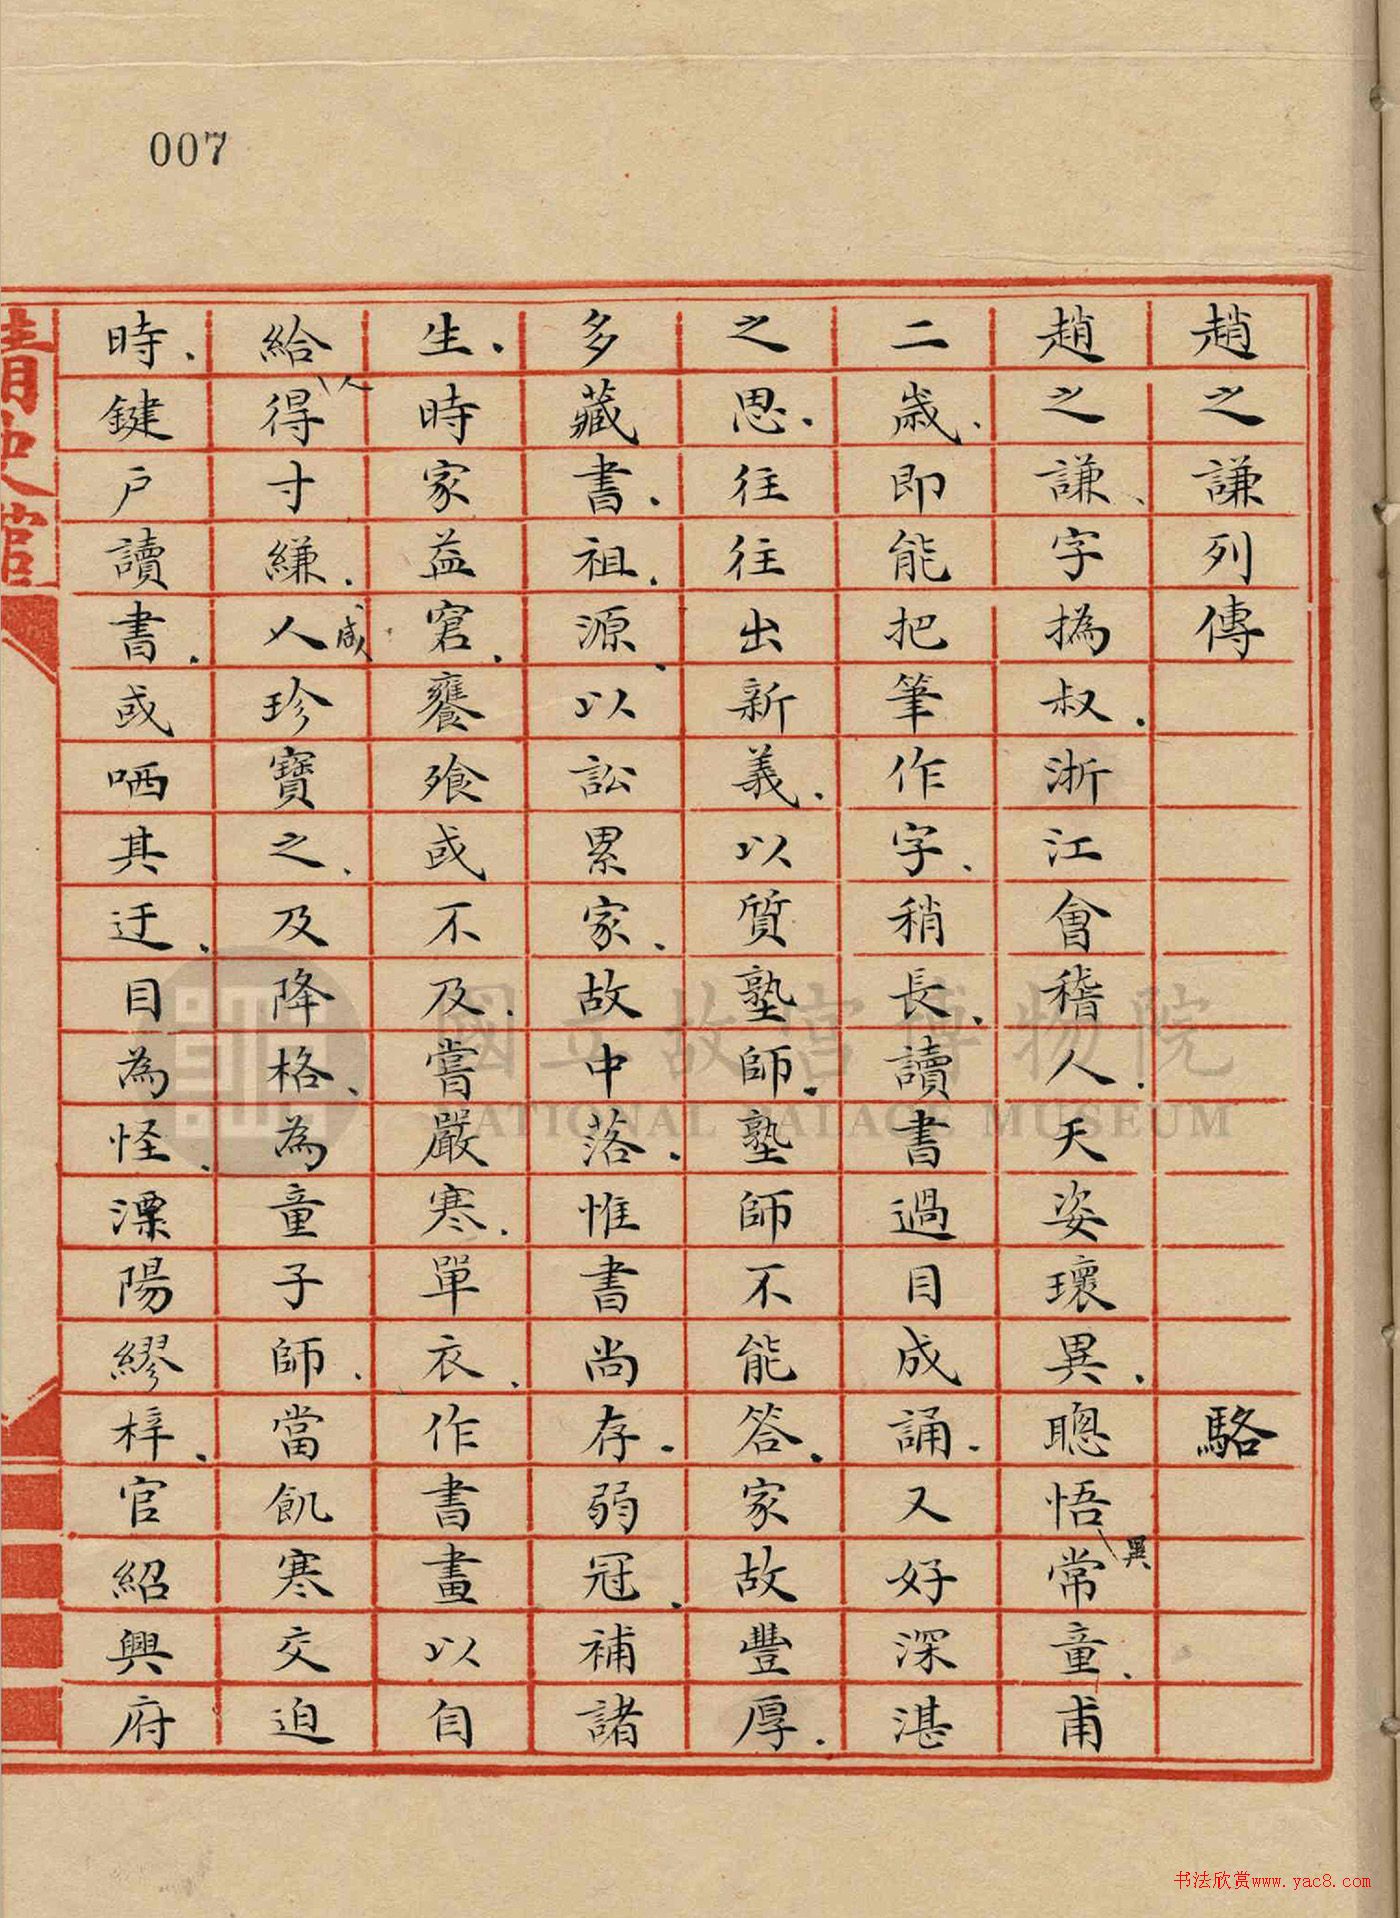 007
趙之謙列傳 駱
趙之謙、字撝叔.浙江會稽人.天姿瓌異.聰悟異常童.甫
二歲.即能把筆作字.稍長.讀書過目成誦.又好深湛
之思.往往出新義.以質塾師.塾師不能答.家故豐厚.
多藏書.祖.源.以訟累家.故中落.惟書尚存.弱冠.補諸
生.時家益窘.饔飧或不及.嘗嚴寒.單衣.作書畫以自
給人得寸縑.人咸珍寶之.及降格.為童子師.當飢寒交迫
時.鍵戶讀書.或哂其迂.目為怪.溧陽繆梓.官紹興府
清史館
國立故宮博物院
NATIONAL PALACE MUSEUM
书法欣赏www.yac8.com